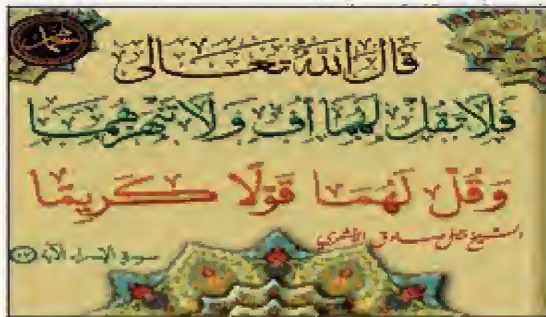 قال الله تعالى
فلا تقل لهما أف ولا تنهرهما
وقل لهما قولا كريما
الشيخ
سورة الإسراء الآية